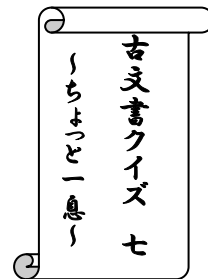 古文書クイズ 七
～ちょっと一息～